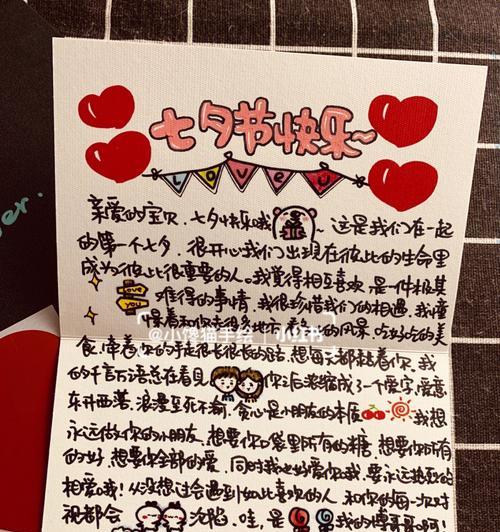 七夕节快乐~
LOVE U
亲爱的宝贝，七夕快乐哦，这是我们在一起
的第一个七夕，很开心我们出现在彼此的生命里
成为彼此很重要的人。我觉得相互喜欢是一件极其
Love you 难得的事情，我很珍惜我们的相遇，我憧
憬着和你去很多地方，看 的风景，吃好吃的美
@小馋猫手绘 小红书
食，牵着你的手走很长很长的路，想每天都黏着你，我
的千言万语总在看见你后浓缩成了一个爱字，爱意
东升西落，浪漫至死不渝，贪心是小朋友的本质，我想
永远做你的小朋友，想要你口袋里所有的糖，想要你所有
的好，想要你全部的爱，同时我也好爱你哦，要永远热烈的
相爱哦！从没想过会遇到如此喜欢的人，和你的每一次对
视都会沦陷，哇，是我的 哥哥呀！
ver.